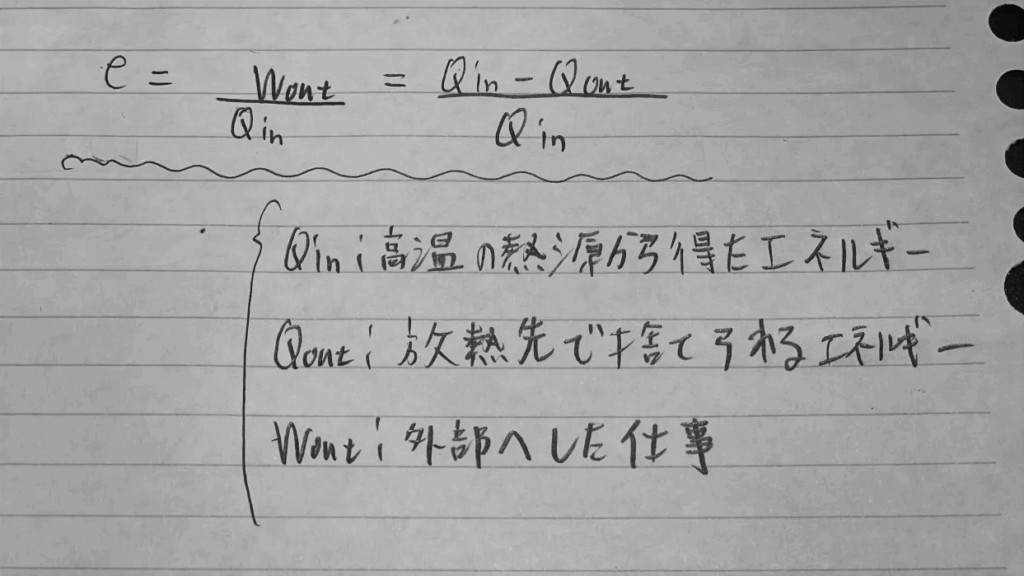 e = Wout / Qin = Qin - Qout / Qin
Qin ; 高温の熱源から得たエネルギー
Qout ; 放熱先で捨てられるエネルギー
Wout ; 外部へした仕事